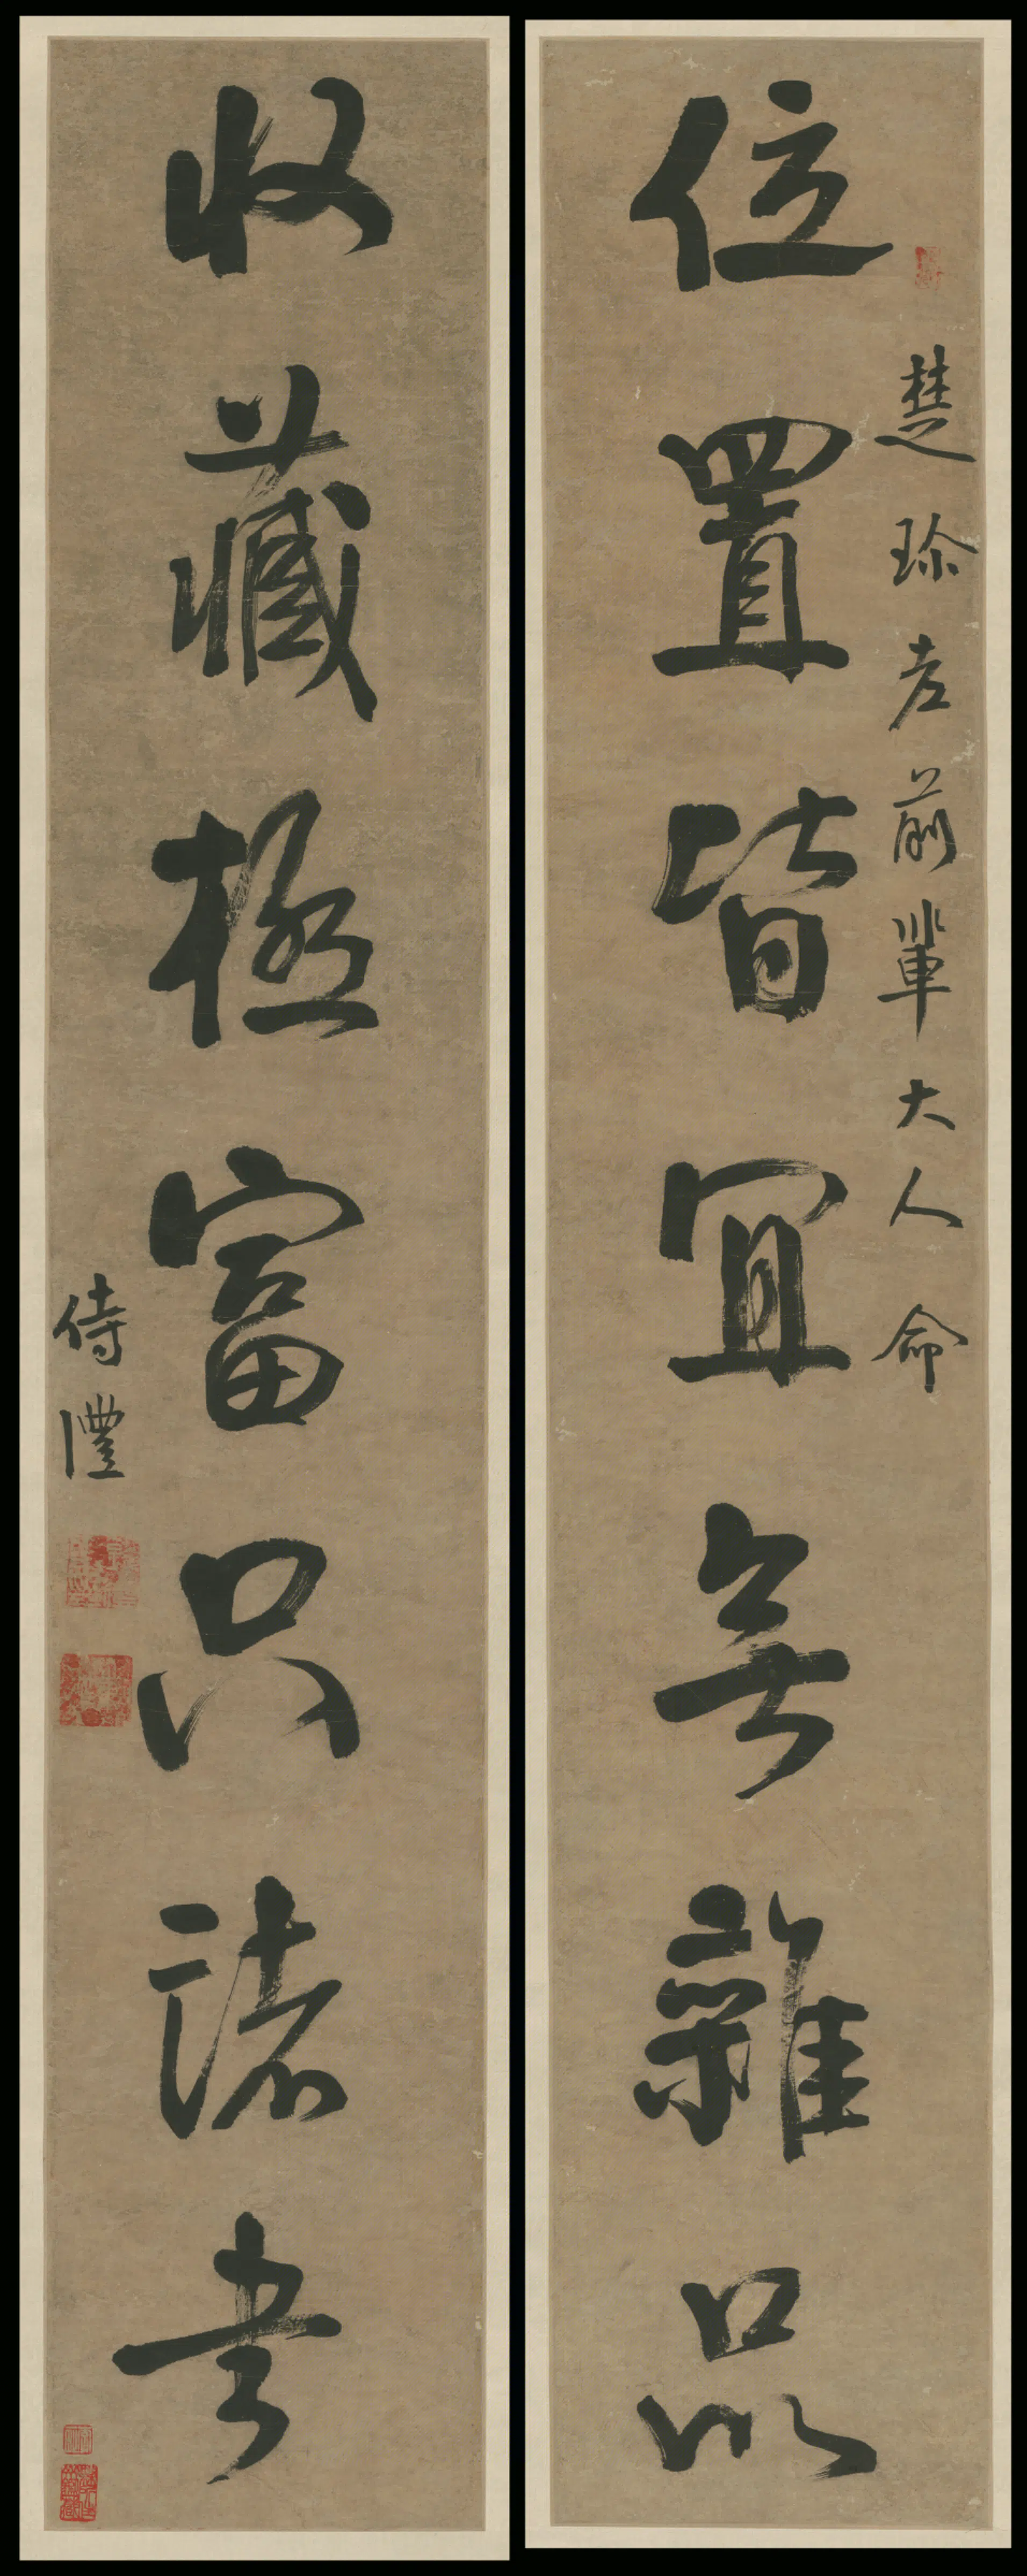 楚珍老前輩大人命
位置皆宜無雜品
收藏極富只諸書
侍灃